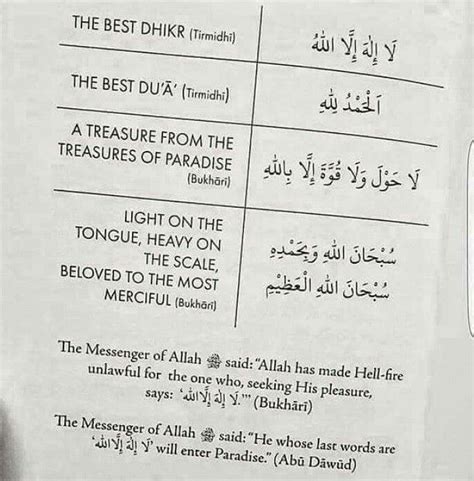 THE BEST DHIKR (Tirmidhī)
لَا إِلٰهَ إِلَّا اللهُ
THE BEST DU'Ā' (Tirmidhī)
اَلْحَمْدُ لِلّٰهِ
A TREASURE FROM THE
TREASURES OF PARADISE
(Bukhārī)
لَا حَوْلَ وَلَا قُوَّةَ إِلَّا بِاللهِ
LIGHT ON THE
TONGUE, HEAVY ON
THE SCALE,
BELOVED TO THE MOST
MERCIFUL (Bukhārī)
سُبْحَانَ اللهِ وَبِحَمْدِهِ
سُبْحَانَ اللهِ الْعَظِيْمِ
The Messenger of Allah ﷺ said: "Allah has made Hell-fire
unlawful for the one who, seeking His pleasure,
says: 'لَا إِلٰهَ إِلَّا الله.'" (Bukhārī)
The Messenger of Allah ﷺ said: "He whose last words are
'لَا إِلٰهَ إِلَّا الله' will enter Paradise." (Abū Dāwūd)